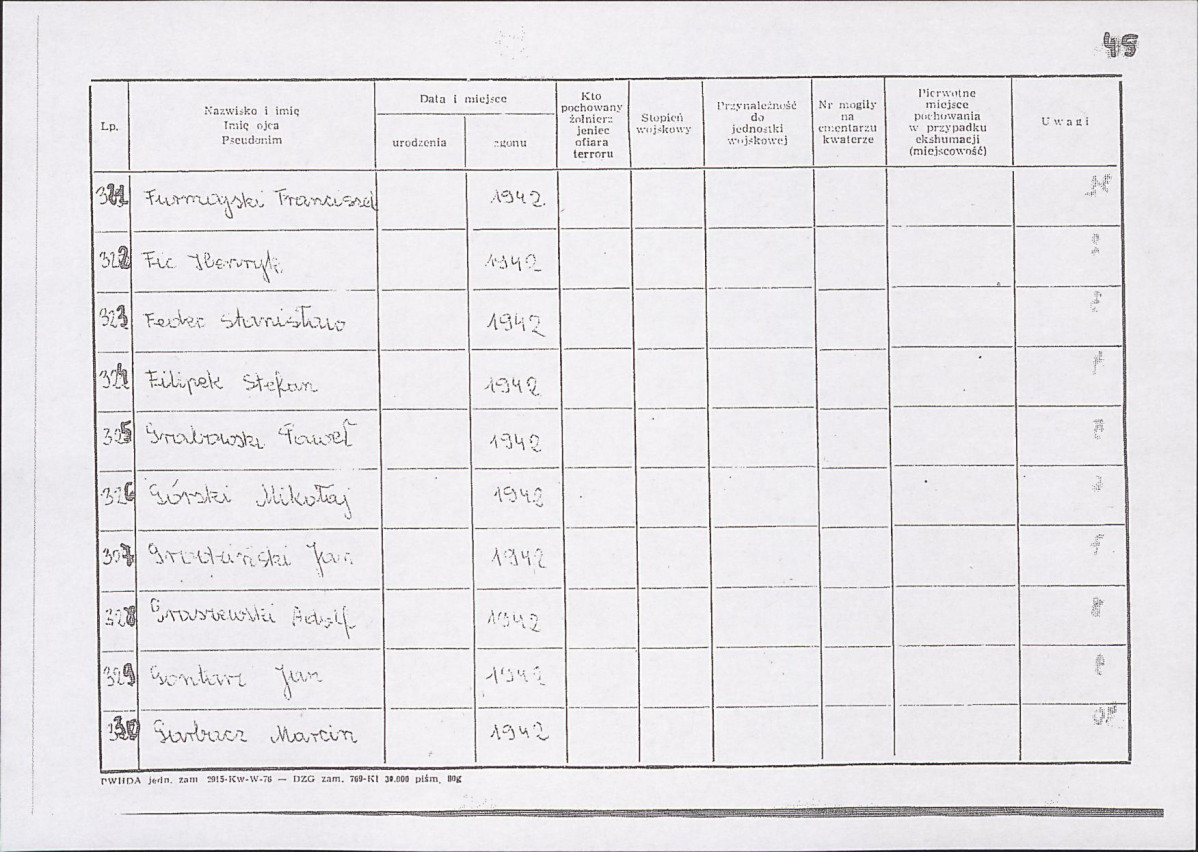 45
Lp. Nazwisko i imię Imię ojca Pseudonim Data i miejsce urodzenia zgonu Kto pochowany żołnierz jeniec ofiara terroru Stopień wojskowy Przynależność do jednostki wojskowej Nr mogiły na cmentarzu kwaterze Pierwotne miejsce pochowania w przypadku ekshumacji (miejscowość) Uwagi
321 Franciszek 1942
322 Fic Henryk 1942
323 Feder Stanisław 1942
324 Filipek Stefan 1942
325 Grabowski Paweł 1942
326 Górski Mikołaj 1942
327 Grudziński Jan 1942
328 Graszewski Adolf 1942
329 Gontarz Jan 1942
330 Garbacz Marcin 1942
PWHDA jedn. zam 2915-Kw-W-76 — DZG zam. 769-Kl 30.000 piśm. 80g